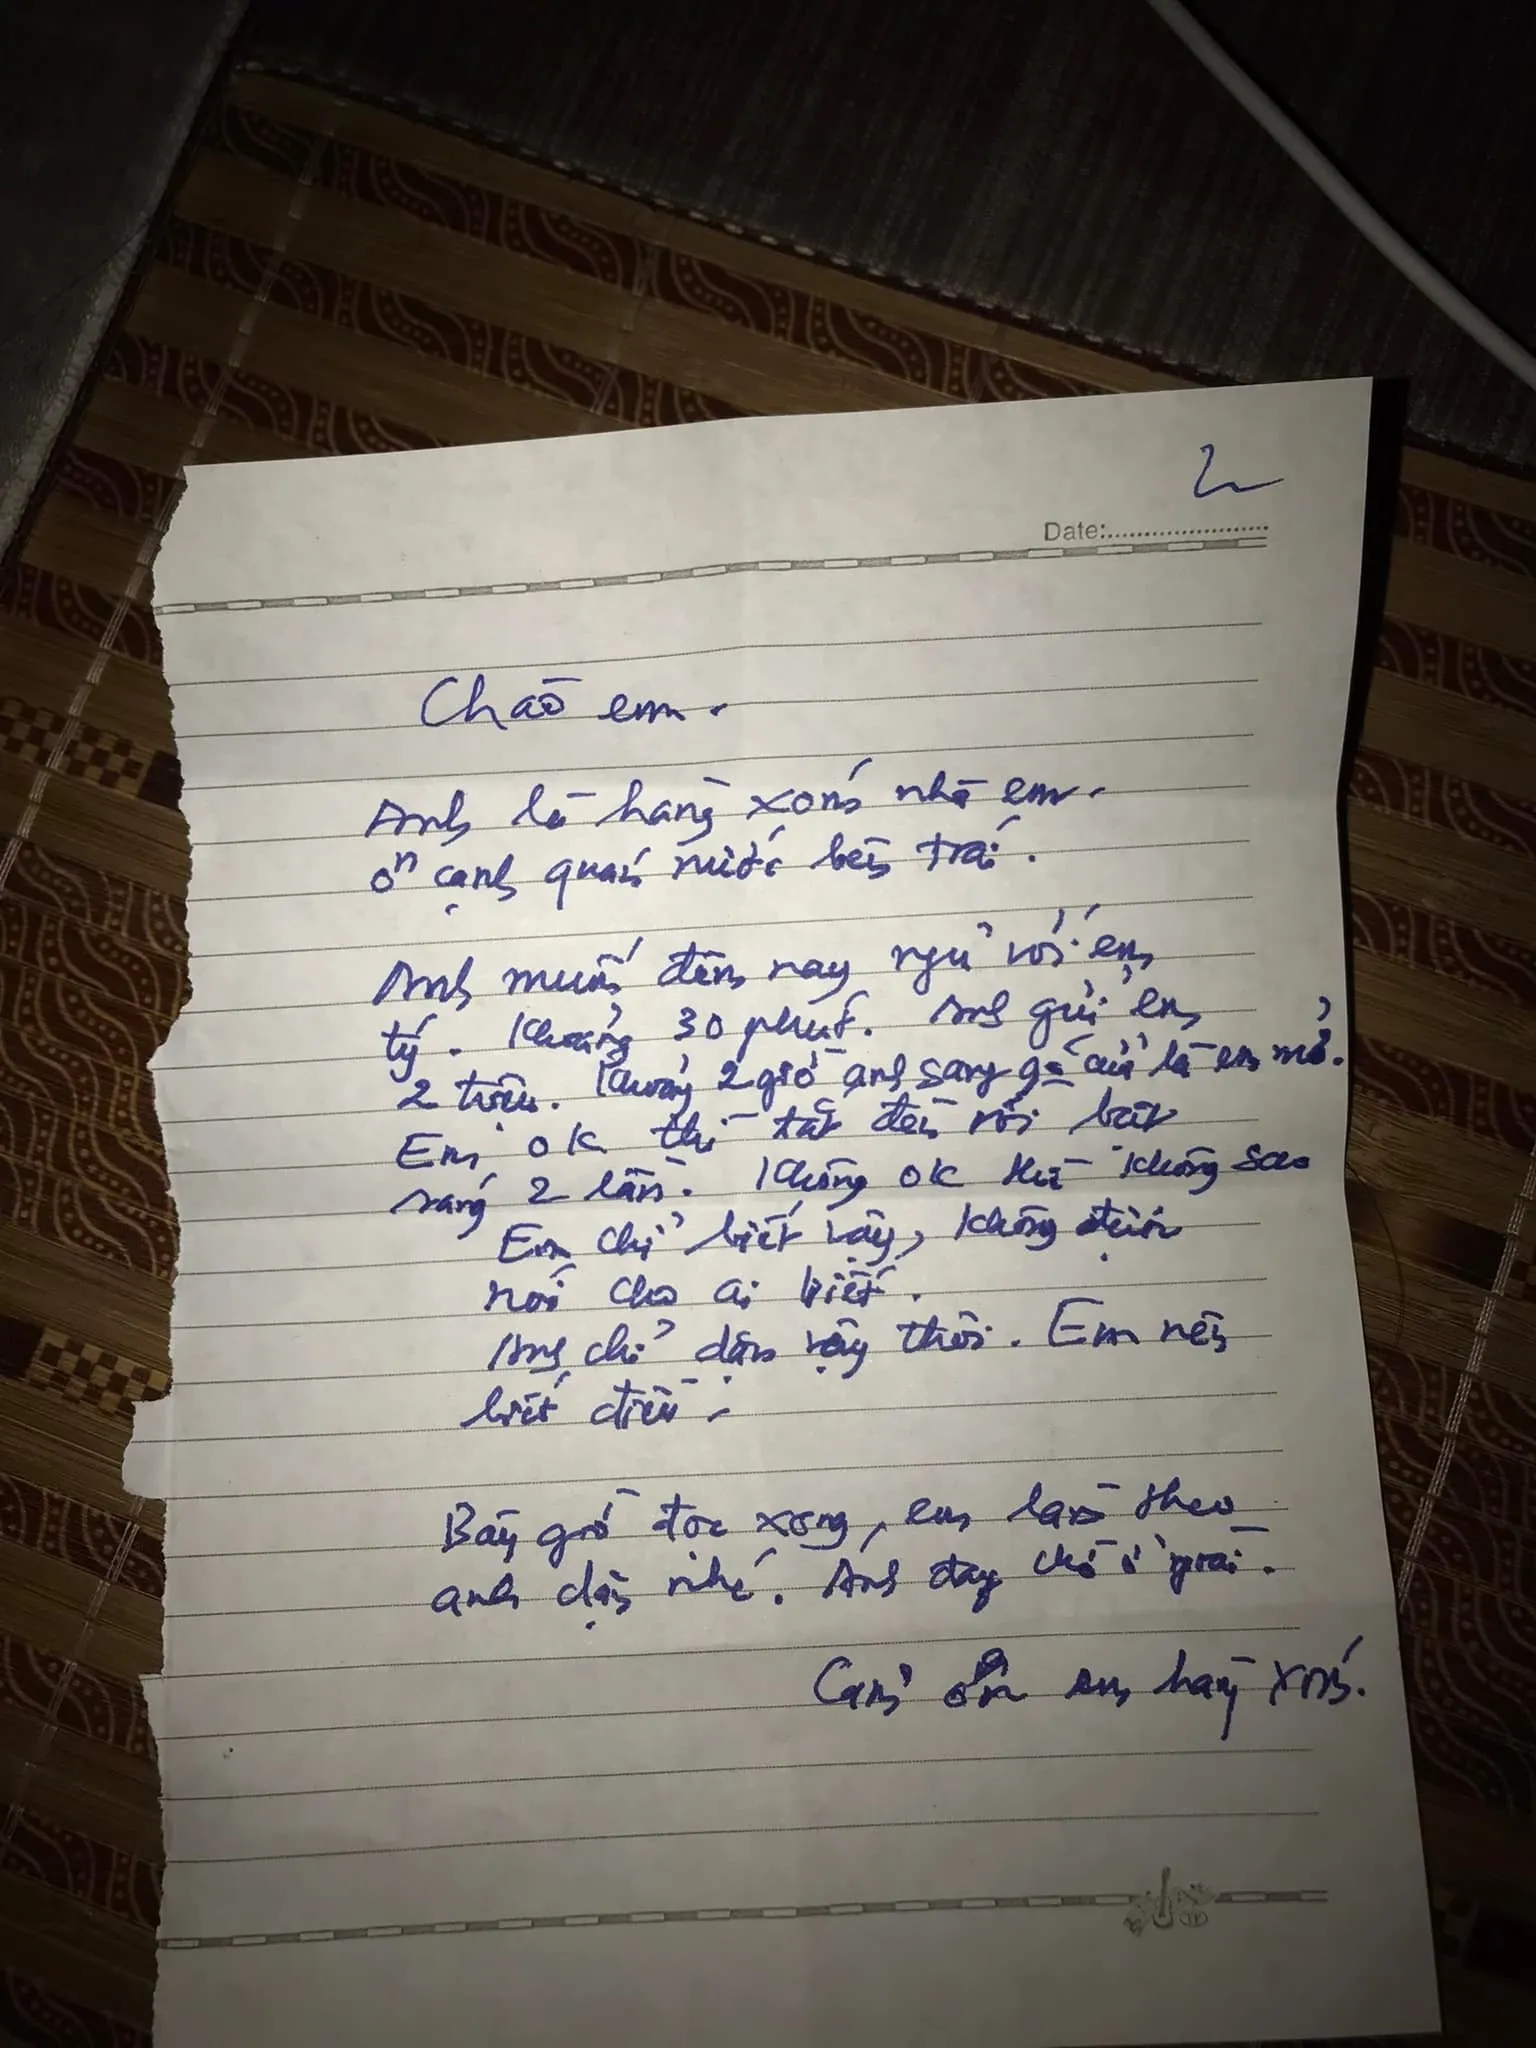 2
Date:
Chào em.
Anh là hàng xóm nhà em.
ở cạnh quán nước bên trái.
Anh muốn đêm nay ngủ với em
tý. Khoảng 30 phút. Anh gửi em
2 triệu. Khoảng 2 giờ anh sang gõ cửa là em mở.
Em ok thì tắt đèn rồi bật
sáng 2 lần. Không ok thì không sao
Em chỉ biết vậy, không được
nói cho ai biết.
Anh chỉ dặn vậy thôi. Em nên
biết điều.
Bây giờ đọc xong, em làm theo
anh dặn nhé. Anh đang chờ ở ngoài.
Cảm ơn em hàng xóm.